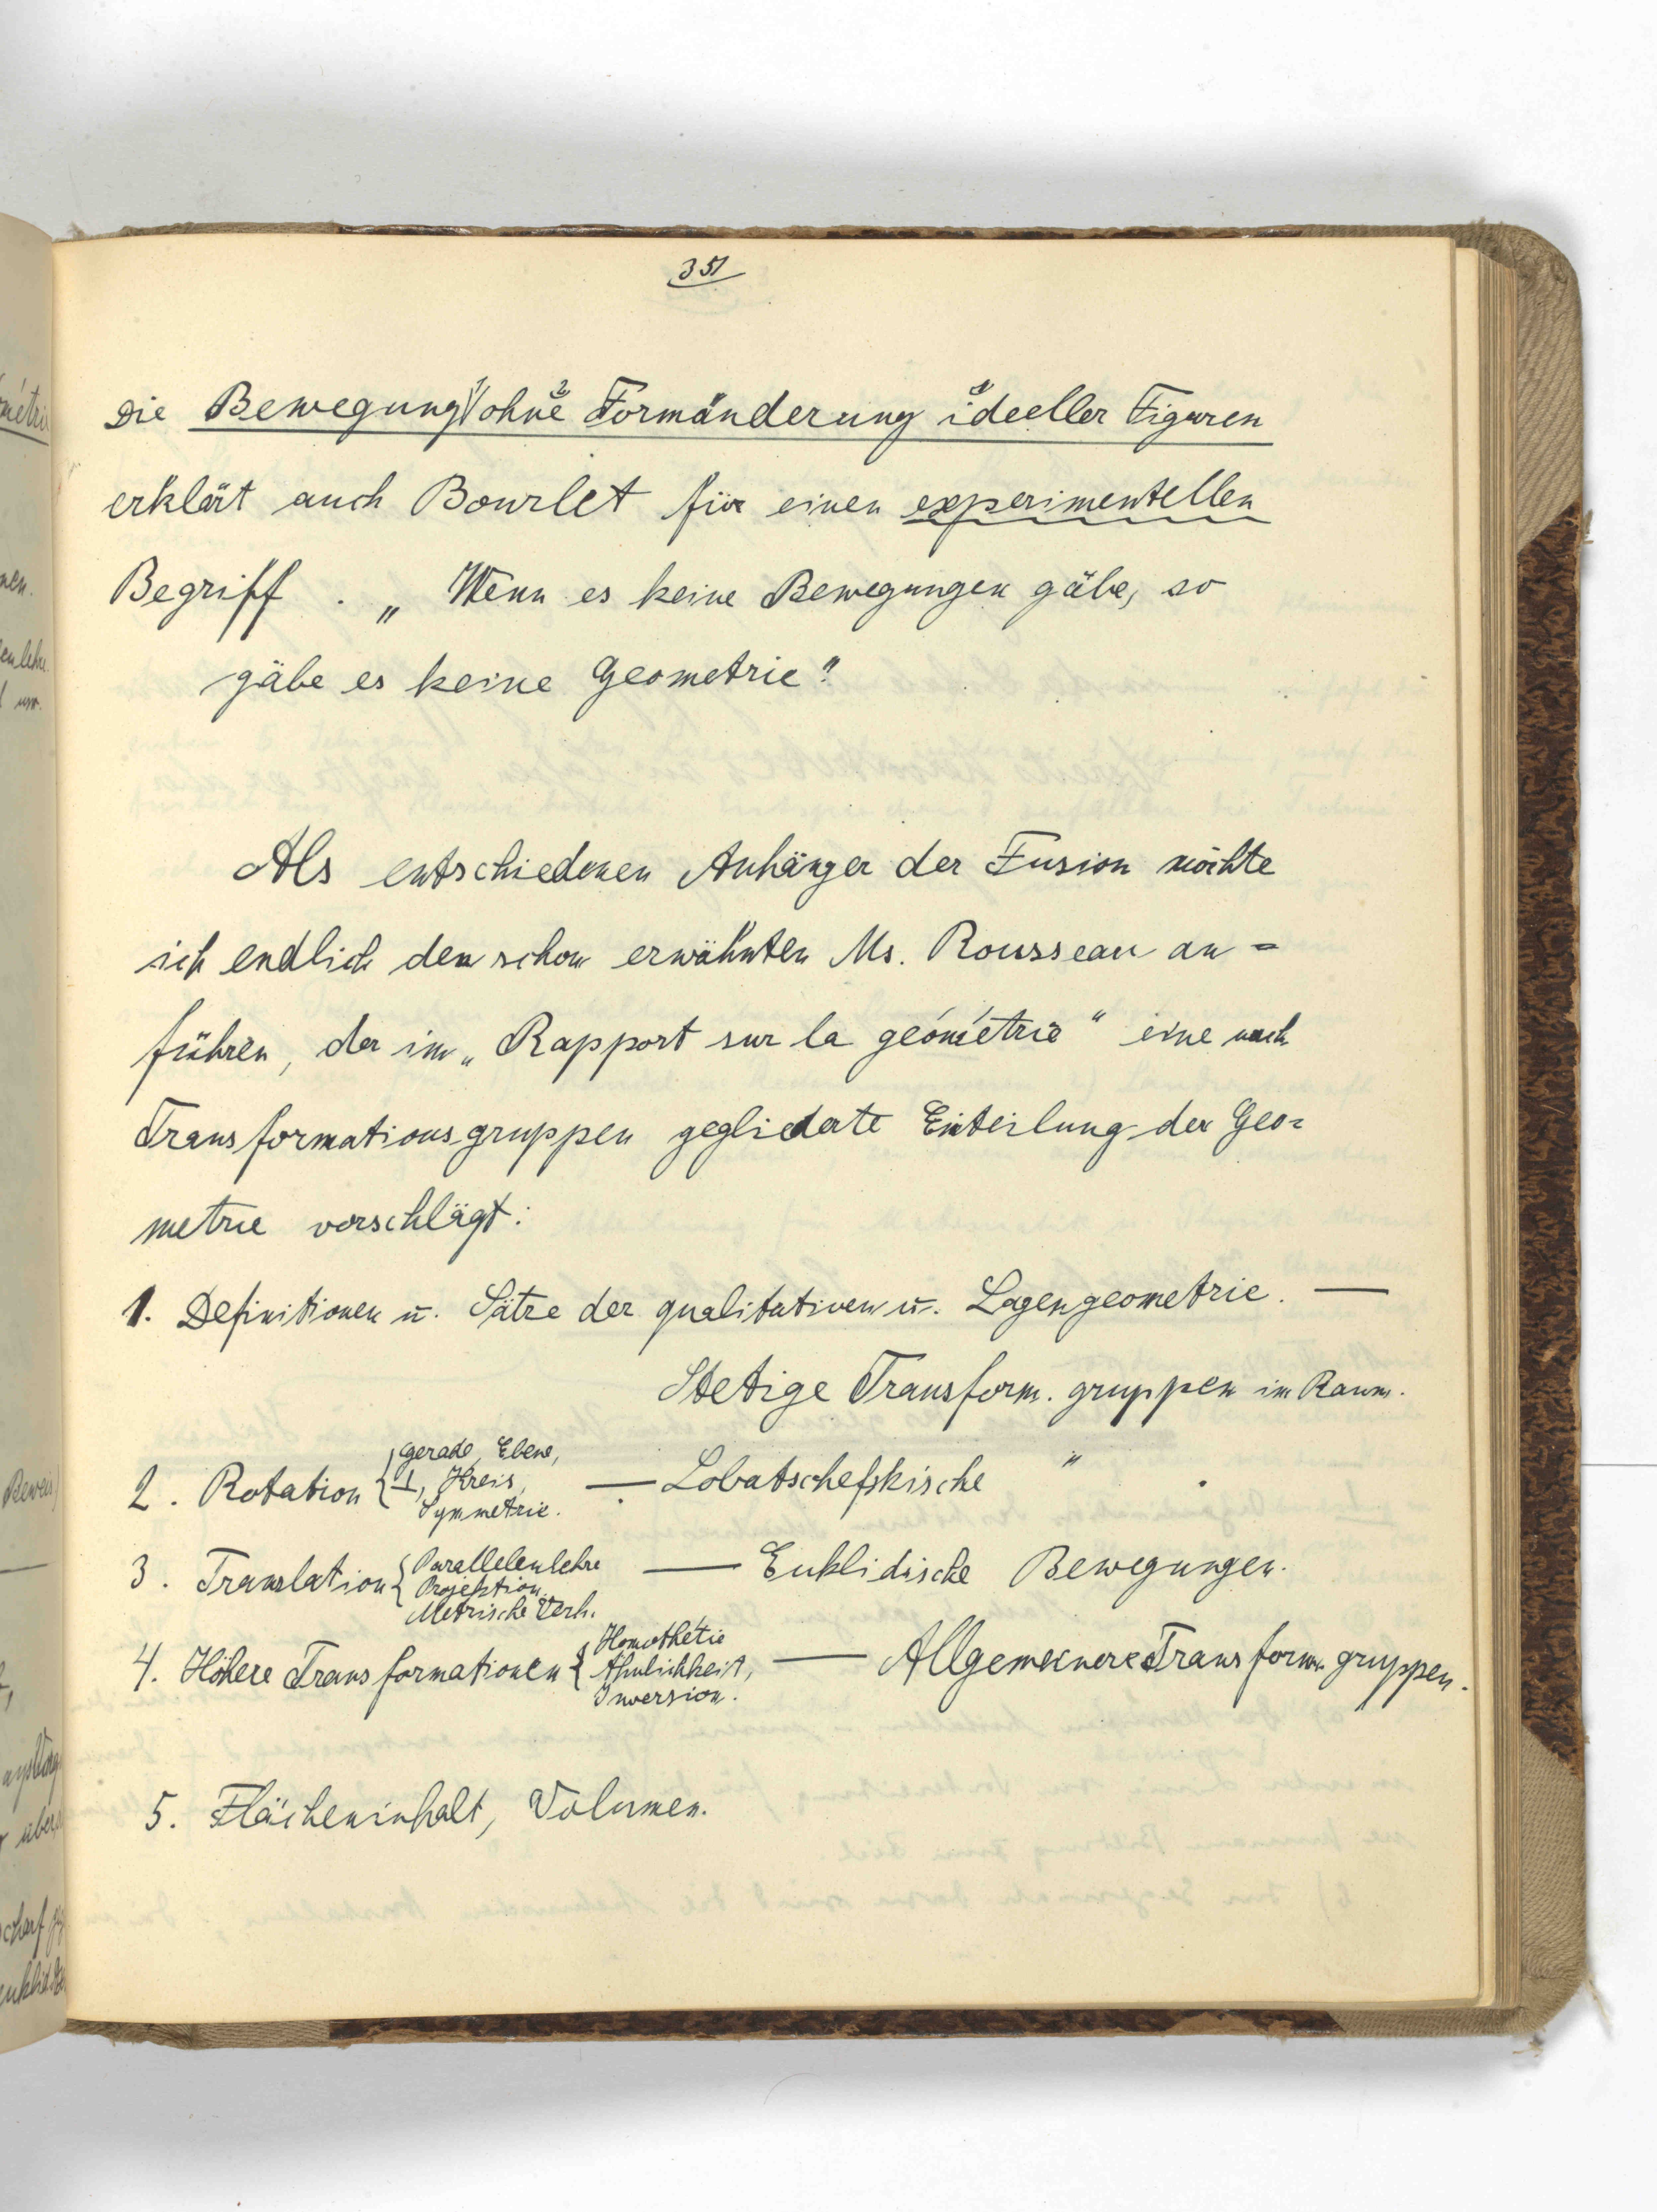 351
Die Bewegung ohne Formänderung ideeller Figuren
erklärt auch Bourlet für einen experimentellen
Begriff. „Wenn es keine Bewegungen gäbe, so
gäbe es keine Geometrie"
Als entschiedenen Anhänger der Fusion möchte
ich endlich den schon erwähnten Ms. Rousseau an=
führen, der im „Rapport sur la géométrie" eine nach
Transformationsgruppen gegliederte Einteilung der Geo=
metrie vorschlägt:
1. Definitionen u. Sätze der qualitativen u. Lagengeometrie. —
Stetige Transform. gruppen im Raum.
2. Rotation { Gerade, Ebene, ⊥, Kreis, Symmetrie. — Lobatschefskische "
3. Translation { Parallelenlehre Projektion Metrische Verh. — Euklidische Bewegungen.
4. Höhere Transformationen { Homothetie Ähnlichkeit, Inversion. — Allgemeinere Transform. gruppen.
5. Flächeninhalt, Volumen.